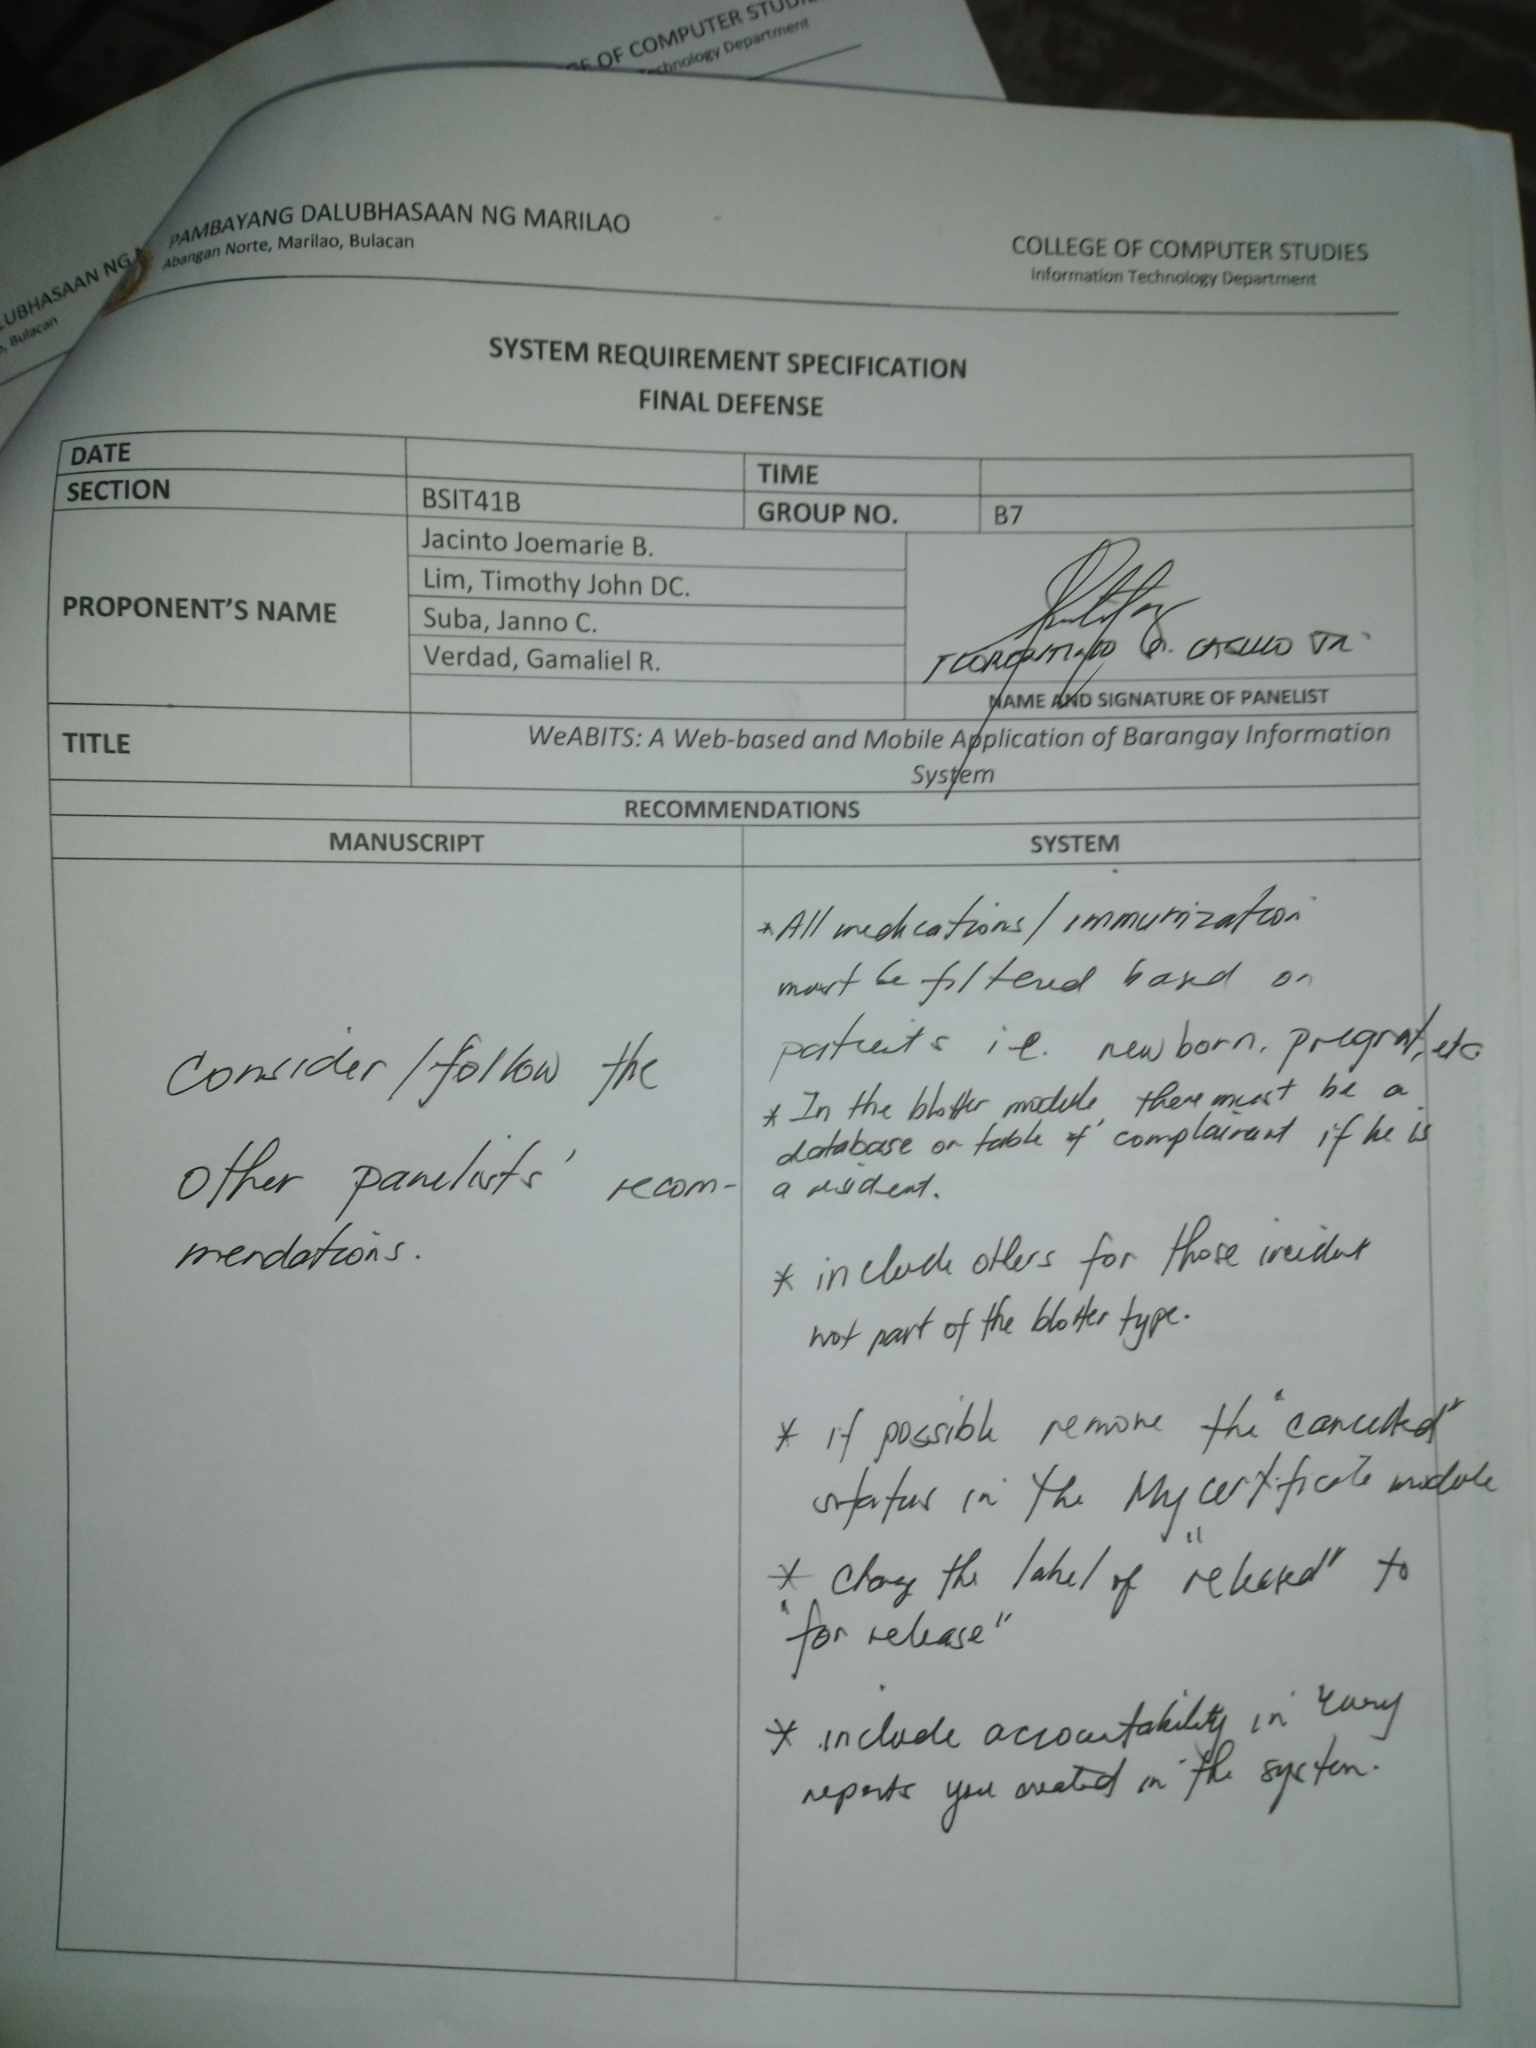 OF COMPUTER STUDI
echnology Department
LUBHASAAN NG
, Bulacan
PAMBAYANG DALUBHASAAN NG MARILAO
Abangan Norte, Marilao, Bulacan
COLLEGE OF COMPUTER STUDIES
Information Technology Department
SYSTEM REQUIREMENT SPECIFICATION
FINAL DEFENSE
DATE
TIME
SECTION
BSIT41B
GROUP NO.
B7
PROPONENT'S NAME
Jacinto Joemarie B.
Lim, Timothy John DC.
Suba, Janno C.
Verdad, Gamaliel R.
JR.
NAME AND SIGNATURE OF PANELIST
TITLE
WeABITS: A Web-based and Mobile Application of Barangay Information
System
RECOMMENDATIONS
MANUSCRIPT
SYSTEM
Consider/follow the
other panelists' recom-
mendations.
* All medications/immunization
must be filtered based on
patients i.e. newborn, pregnt, etc
* In the blotter module, there must be a
database or table of complainant if he is
a resident.
* include others for those incident
not part of the blotter type.
* if possible remove the "cancelled"
status in the My certificate module
* change the label of "released" to
"for release"
* include accountability in every
reports you created in the system.